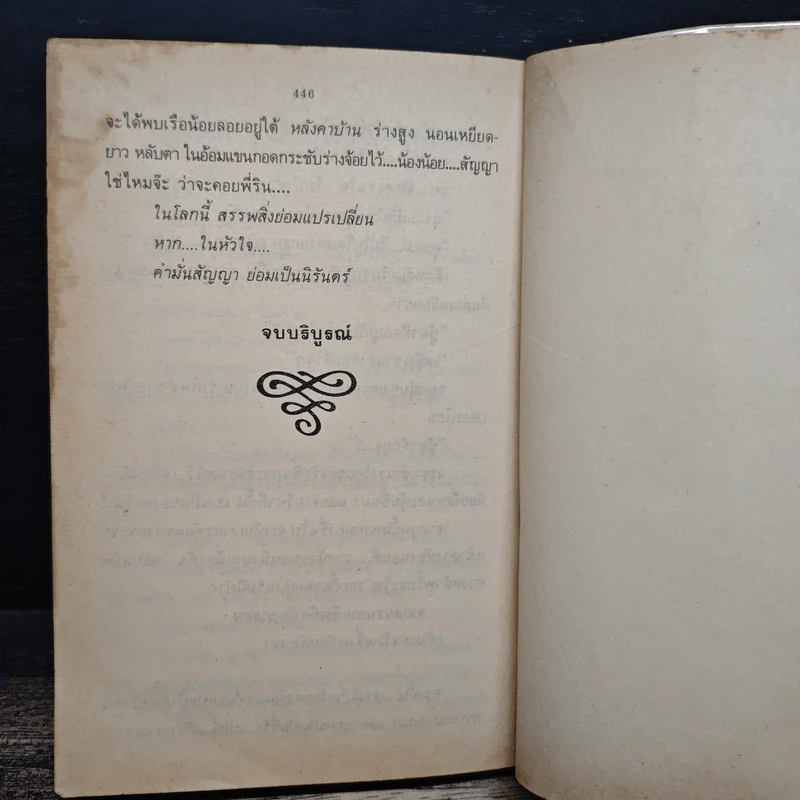 446
จะได้พบเรือน้อยลอยอยู่ใต้ หลังคาบ้าน ร่างสูง นอนเหยียด-
ยาว หลับตา ในอ้อมแขนกอดกระชับร่างจ้อยไว้....น้องน้อย....สัญญา
ใช่ไหมจ๊ะ ว่าจะคอยพี่ริน....
ในโลกนี้ สรรพสิ่งย่อมแปรเปลี่ยน
หาก....ในหัวใจ....
คำมั่นสัญญา ย่อมเป็นนิรันดร์
จบบริบูรณ์